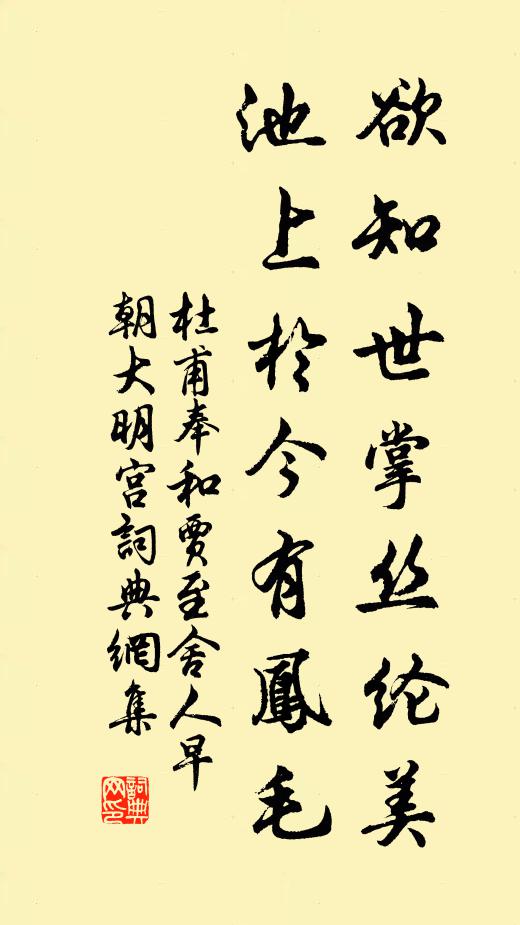 欲知世掌丝纶美
池上於今有鳳毛
杜甫奉和賈至舍人早
朝大明宫詞典網集
詞典
网印